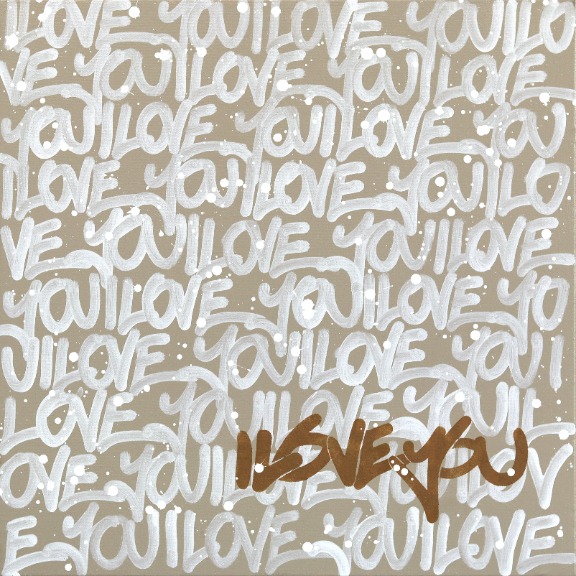 LOVE YOU I LOVE YOU I LO
VE YOU I LOVE YOU I LOVE
YOU I LOVE YOU I LOVE YOU
I LOVE YOU I LOVE YOU I LO
VE YOU I LOVE YOU I LOVE
YOU I LOVE YOU I LOVE YO
U I LOVE YOU I LOVE YOU I
LOVE YOU I LOVE
I LOVE YOU
OVE YOU I LOV
E YOU I LOVE YOU I LOVE